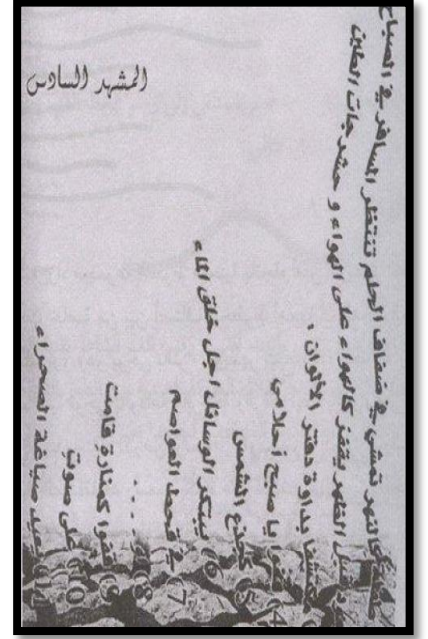 المشهد السادس
كالنهر تمشي في ضفاف الحلم تنتظر المسافر في الصباح
قبل الظهر يقفز كالهواء على الهواء و حشرجات الطين
مكتشفا بداوة دفتر الألوان .
4) يا صبح أحلامي
5) كجذع الشمس
6) يبتكر الوسائل اجل خلق الماء
7) في قحط العواصم
8) . . . .
9) قفوا كمنارة قامت
10) على صوت
صياغة الصحراء